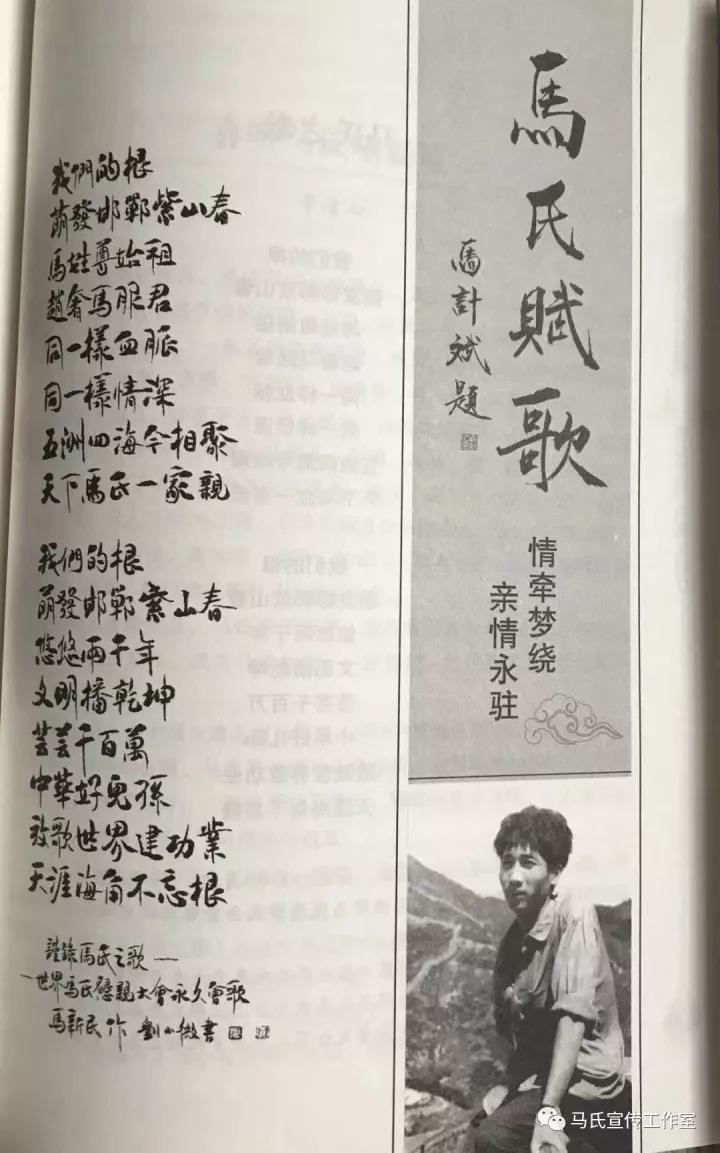 我們的根
萌發邯鄲紫山春
馬姓尊始祖
趙奢馬服君
同一樣血脈
同一樣情深
五洲四海今相聚
天下馬氏一家親
我們的根
萌發邯鄲紫山春
悠悠兩千年
文明播乾坤
芸芸千百萬
中華好兒孫
放歌世界建功業
天涯海角不忘根
謹錄馬氏之歌—
世界馬氏懇親大會永久會歌
馬新民作 劉小微書
馬氏賦歌
馬計斌題
情牵梦绕
亲情永驻
马氏宣传工作室